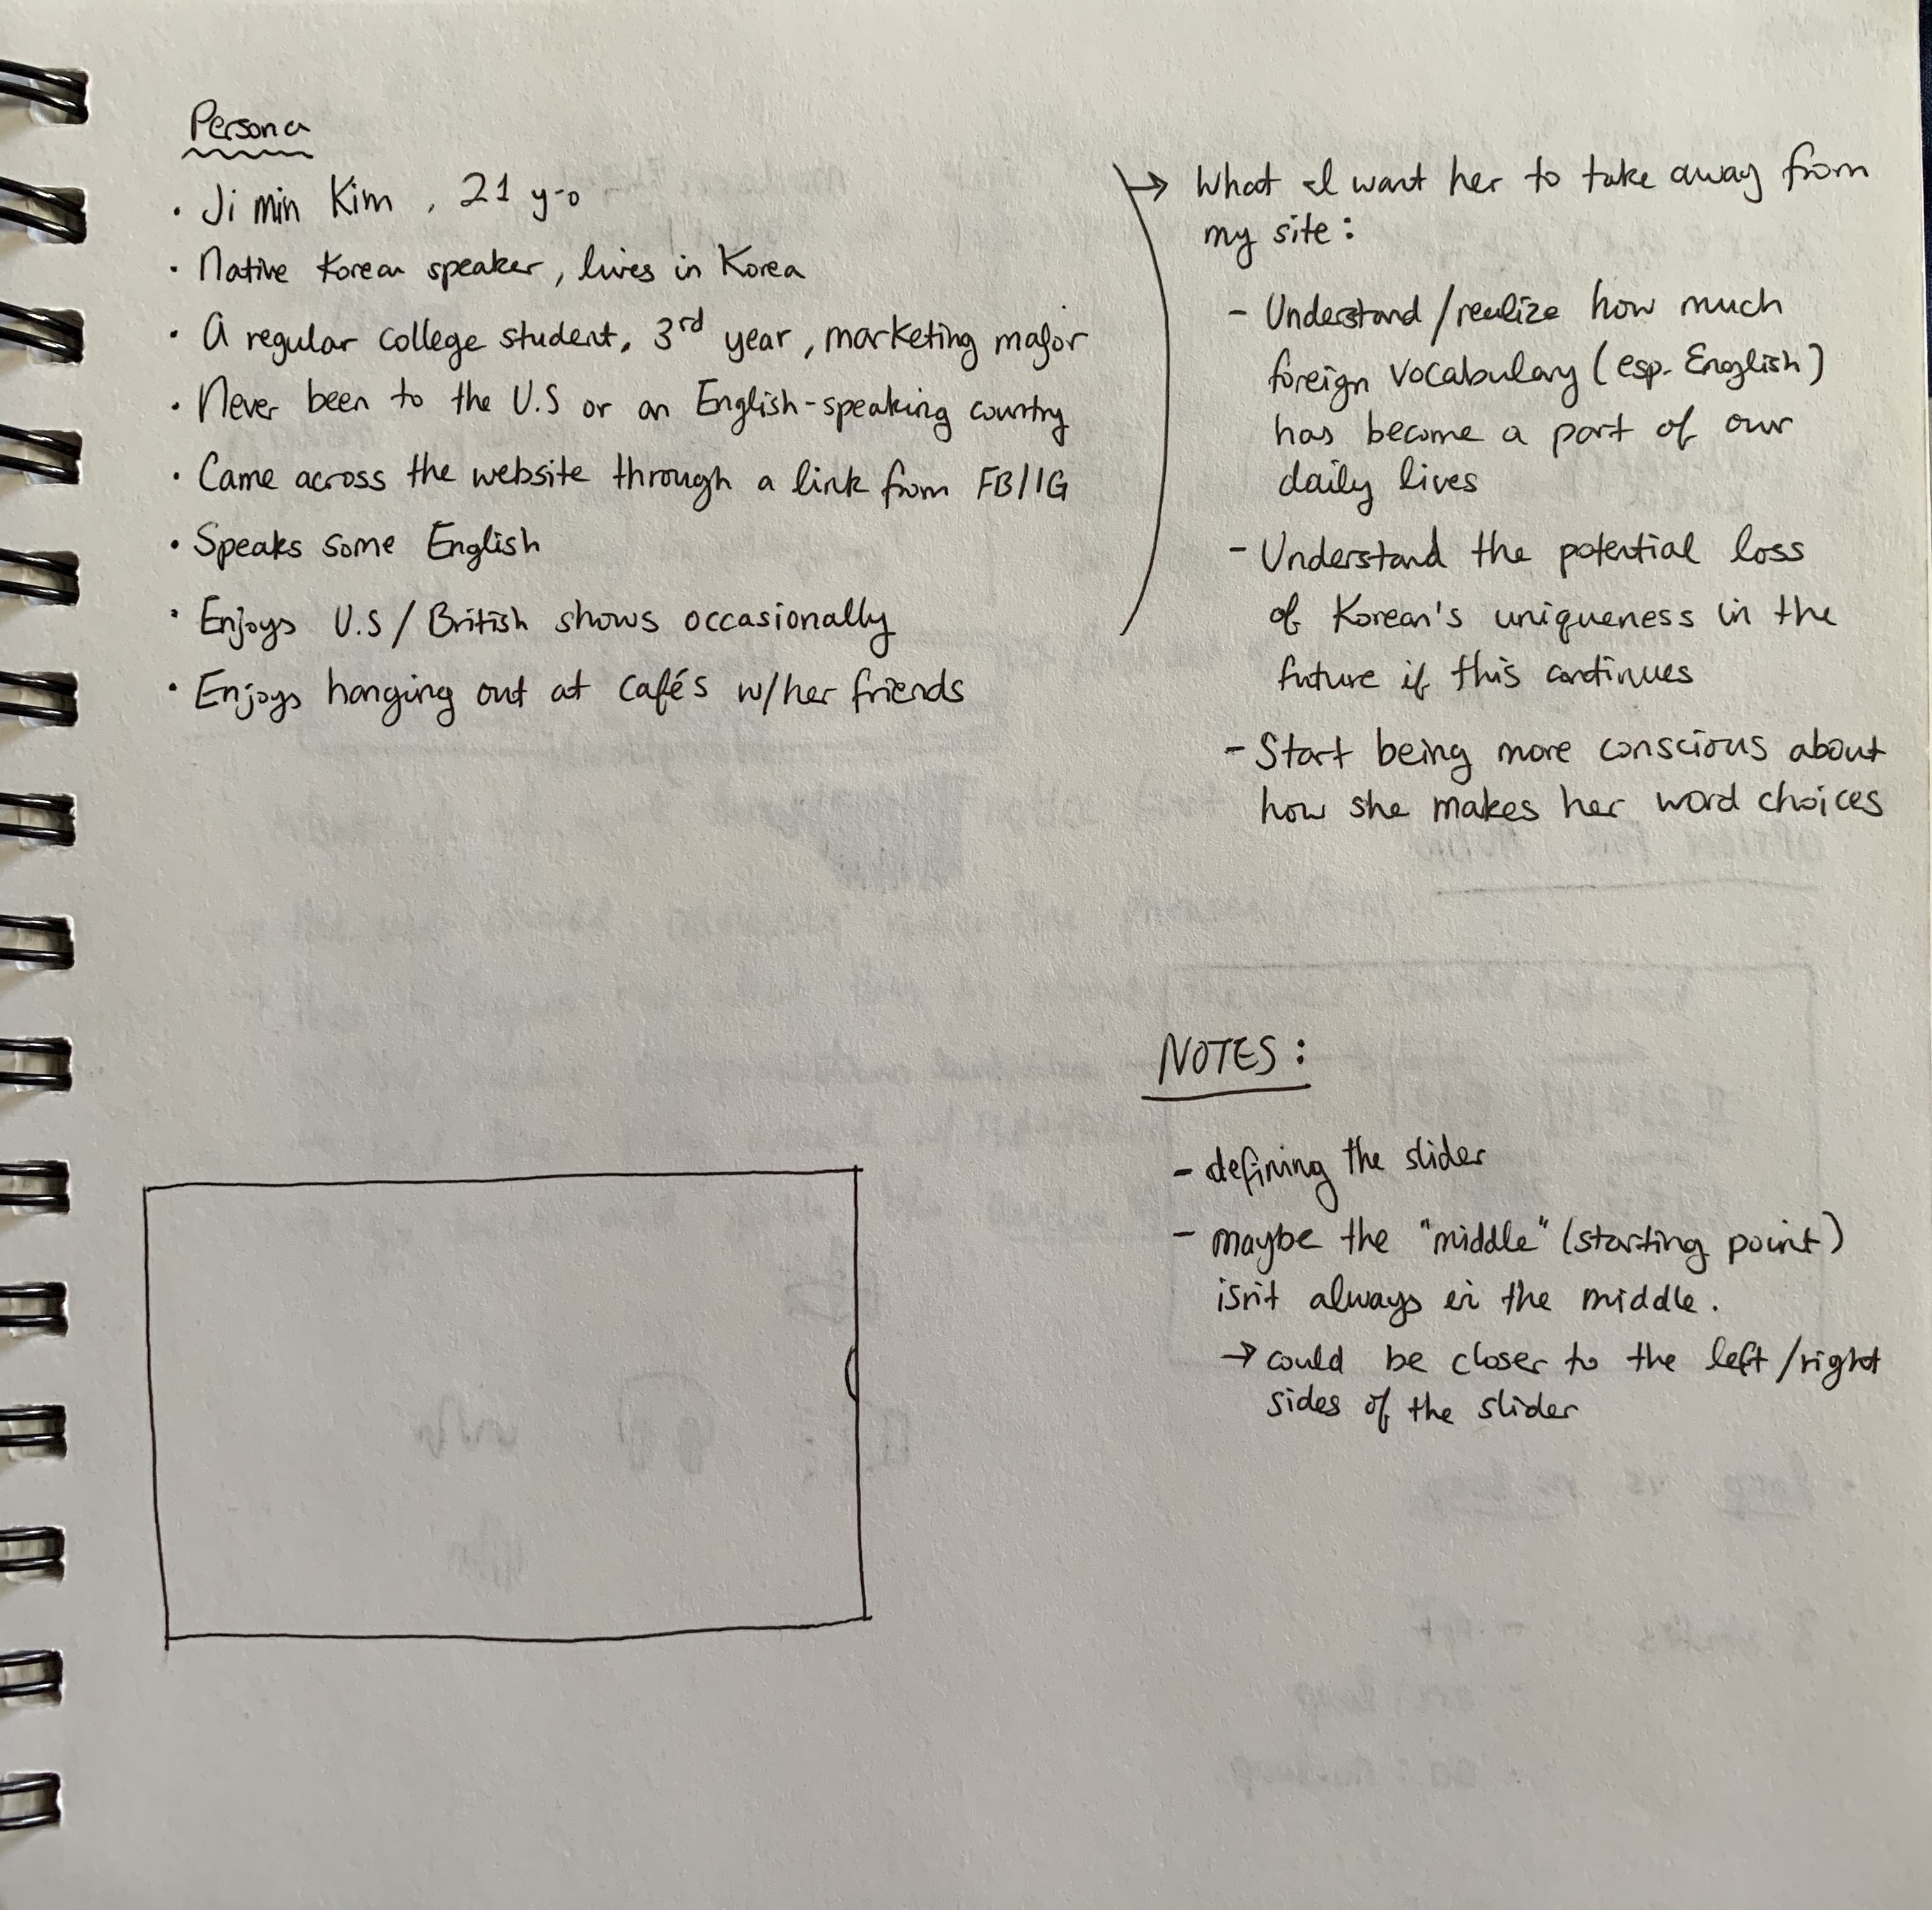 Persona
• Ji min Kim, 21 y-o
• Native Korean speaker, lives in Korea
• A regular college student, 3rd year, marketing major
• Never been to the U.S or an English-speaking country
• Came across the website through a link from FB/IG
• Speaks some English
• Enjoys U.S/British shows occasionally
• Enjoys hanging out at cafés w/her friends
→ What I want her to take away from
my site:
- Understand/realize how much
foreign vocabulary (esp. English)
has become a part of our
daily lives
- Understand the potential loss
of Korean's uniqueness in the
future if this continues
- Start being more conscious about
how she makes her word choices
NOTES:
- defining the slider
- maybe the "middle" (starting point)
isn't always in the middle.
→ could be closer to the left/right
sides of the slider